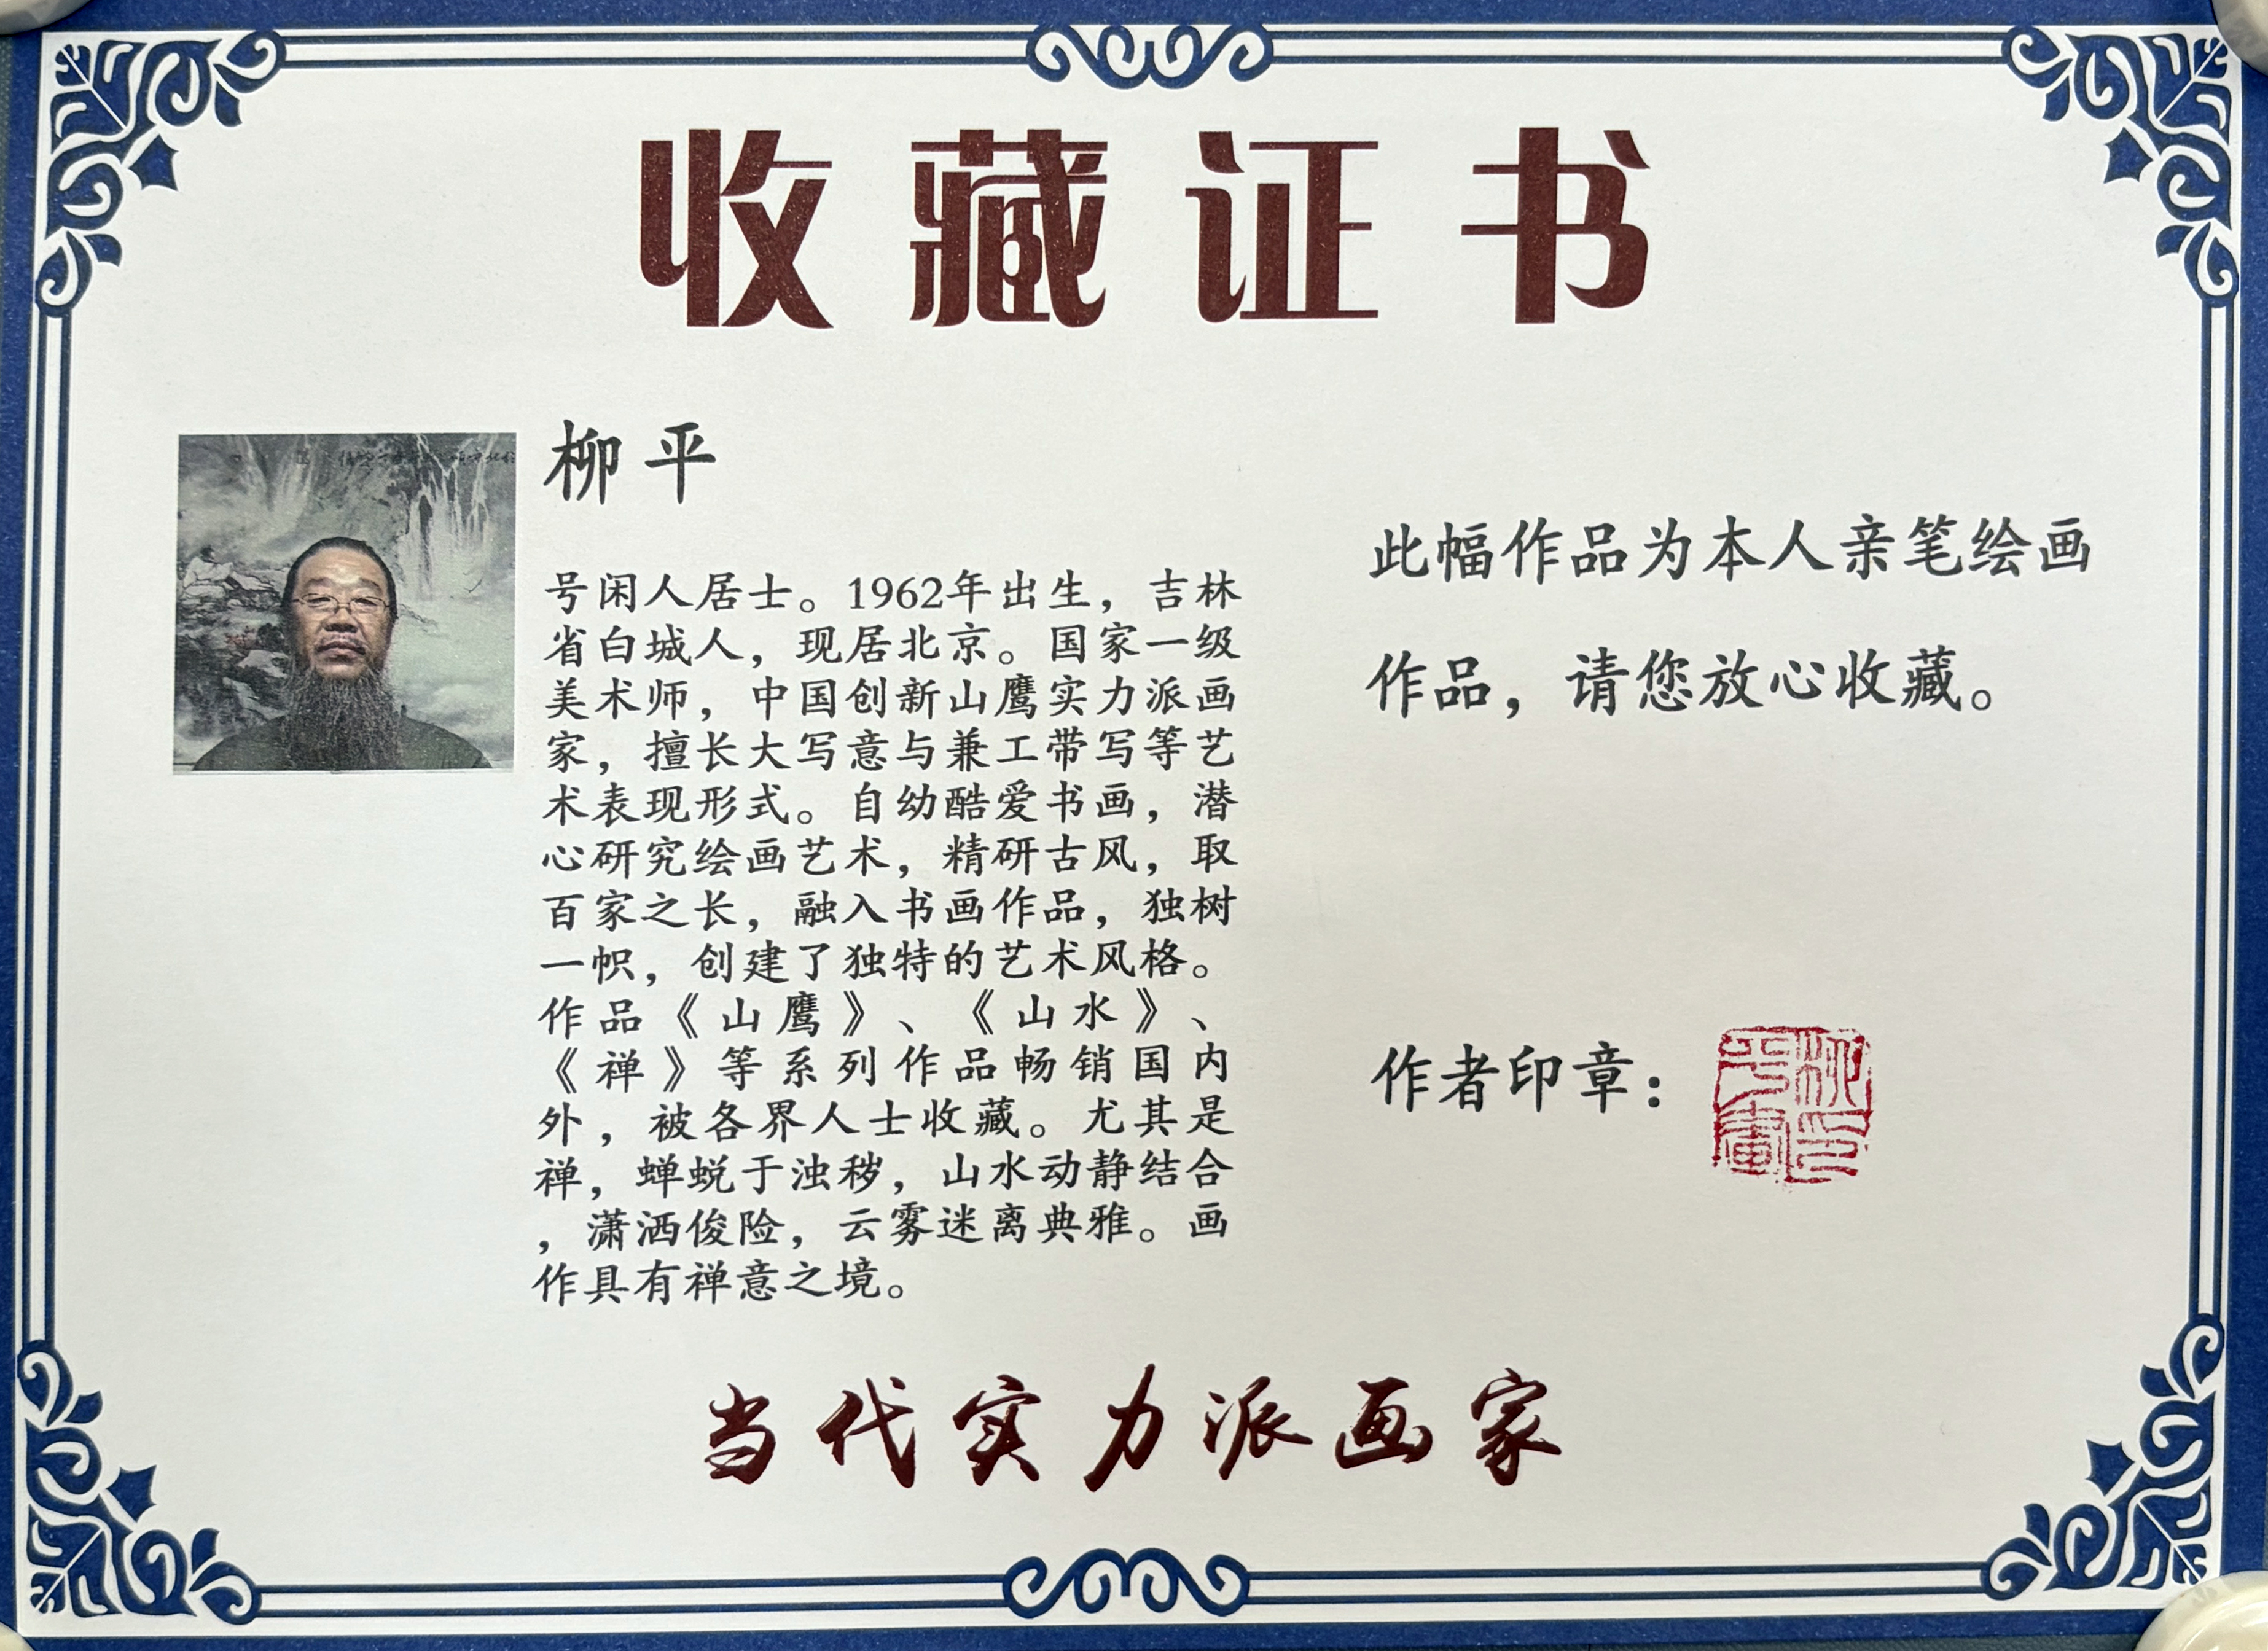 收藏证书
柳平
号闲人居士。1962年出生，吉林
省白城人，现居北京。国家一级
美术师，中国创新山鹰实力派画
家，擅长大写意与兼工带写等艺
术表现形式。自幼酷爱书画，潜
心研究绘画艺术，精研古风，取
百家之长，融入书画作品，独树
一帜，创建了独特的艺术风格。
作品《山鹰》、《山水》、
《禅》等系列作品畅销国内
外，被各界人士收藏。尤其是
禅，蝉蜕于浊秽，山水动静结合
，潇洒俊险，云雾迷离典雅。画
作具有禅意之境。
此幅作品为本人亲笔绘画
作品，请您放心收藏。
作者印章：
柳平画印
当代实力派画家